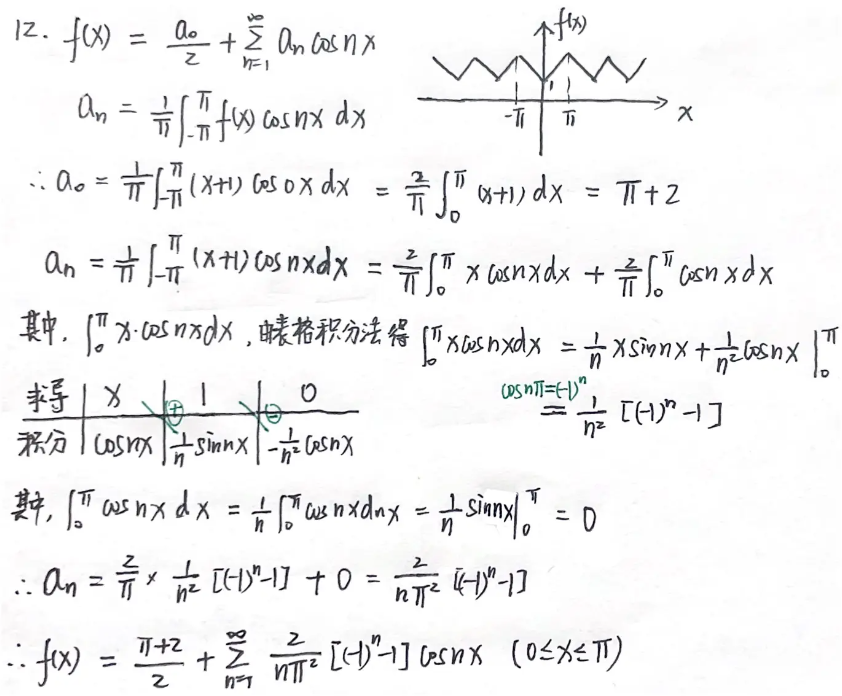 12. f(x) = a₀/2 + ∑_{n=1}^{∞} aₙ cosnx
f(x)
1
-π π x
aₙ = 1/π ∫_{-π}^{π} f(x) cosnx dx
∴ a₀ = 1/π ∫_{-π}^{π} (x+1) cos0x dx = 2/π ∫_0^π (x+1) dx = π+2
aₙ = 1/π ∫_{-π}^{π} (x+1) cosnxdx = 2/π ∫_0^π x cosnxdx + 2/π ∫_0^π cosnxdx
其中, ∫_0^π x·cosnxdx, 由表格积分法得 ∫_0^π xcosnxdx = 1/n xsinnx + 1/n² cosnx |_0^π
cosnπ=(-1)ⁿ
= 1/n² [(-1)ⁿ -1]
求导 | x ⊕ | 1 ⊖ | 0
积分 | cosnx | 1/n sinnx | -1/n² cosnx
其中, ∫_0^π cosnx dx = 1/n ∫_0^π cosnxdnx = 1/n sinnx |_0^π = 0
∴ aₙ = 2/π × 1/n² [(-1)ⁿ-1] + 0 = 2/nπ² [(-1)ⁿ-1]
∴ f(x) = π+2/2 + ∑_{n=1}^{∞} 2/nπ² [(-1)ⁿ-1] cosnx (0≤x≤π)